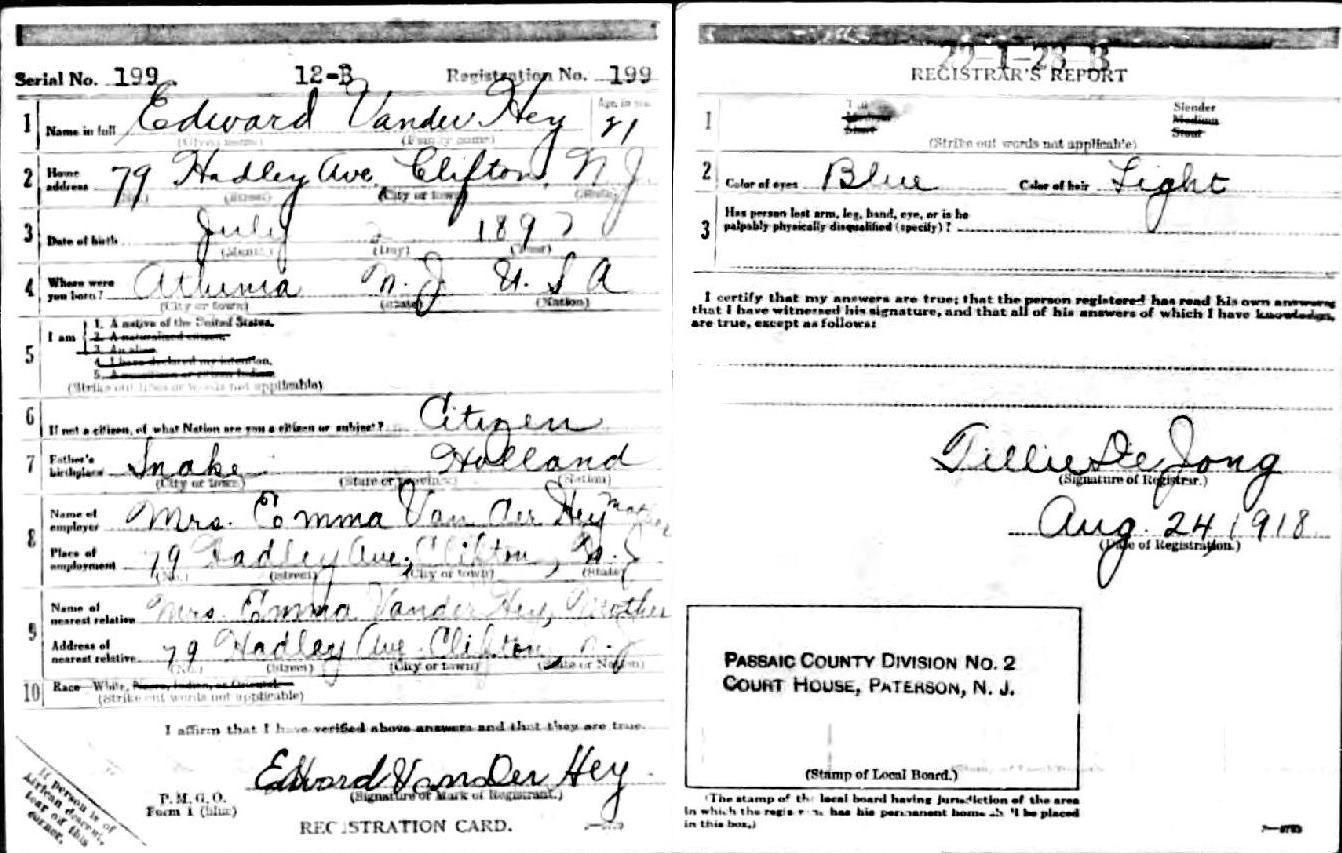 Serial No. 199 12-B Registration No. 199
1 Name in full Edward Vander Hey Age, in yrs. 21
(Given name) (Family name)
2 Home address 79 Hadley Ave. Clifton, N.J.
(No.) (Street) (City or town) (State)
3 Date of birth July 2 1897
(Month) (Day) (Year)
4 Where were you born? Athenia N.J. U.S.A
(City or town) (State) (Nation)
5 I am
1. A native of the United States.
2. A naturalized citizen.
3. An alien.
4. I have declared my intention.
5. A noncitizen or citizen Indian.
(Strike out lines or words not applicable)
6 If not a citizen, of what Nation are you a citizen or subject? Citizen
7 Father's birthplace Snake Holland
(City or town) (State or province) (Nation)
8 Name of employer Mrs. Emma Van der Hey Mother
Place of employment 79 Hadley Ave., Clifton, N.J.
(No.) (Street) (City or town) (State)
9 Name of nearest relative Mrs. Emma Vander Hey, Mother
Address of nearest relative 79 Hadley Ave. Clifton, N.J.
(No.) (Street) (City or town) (State or Nation)
10 Race—White, Negro, Indian, or Oriental
(Strike out words not applicable)
I affirm that I have verified above answers and that they are true.
Edward Van Der Hey
P. M. G. O.
Form 1 (blue)
(Signature or Mark of Registrant.)
REGISTRATION CARD.
If person is of
African descent,
tear off this
corner.
REGISTRAR'S REPORT
1 Tall Slender
Medium Medium
Short Stout
(Strike out words not applicable)
2 Color of eyes Blue Color of hair Light
3 Has person lost arm, leg, hand, eye, or is he
palpably physically disqualified (specify)?
I certify that my answers are true; that the person registered has read his own answers
that I have witnessed his signature, and that all of his answers of which I have knowledge,
are true, except as follows:
Tillie De Jong
(Signature of Registrar.)
Aug. 24 1918
(Date of Registration.)
PASSAIC COUNTY DIVISION NO. 2
COURT HOUSE, PATERSON, N. J.
(Stamp of Local Board.)
(The stamp of the local board having jurisdiction of the area
in which the registrant has his permanent home shall be placed
in this box.)